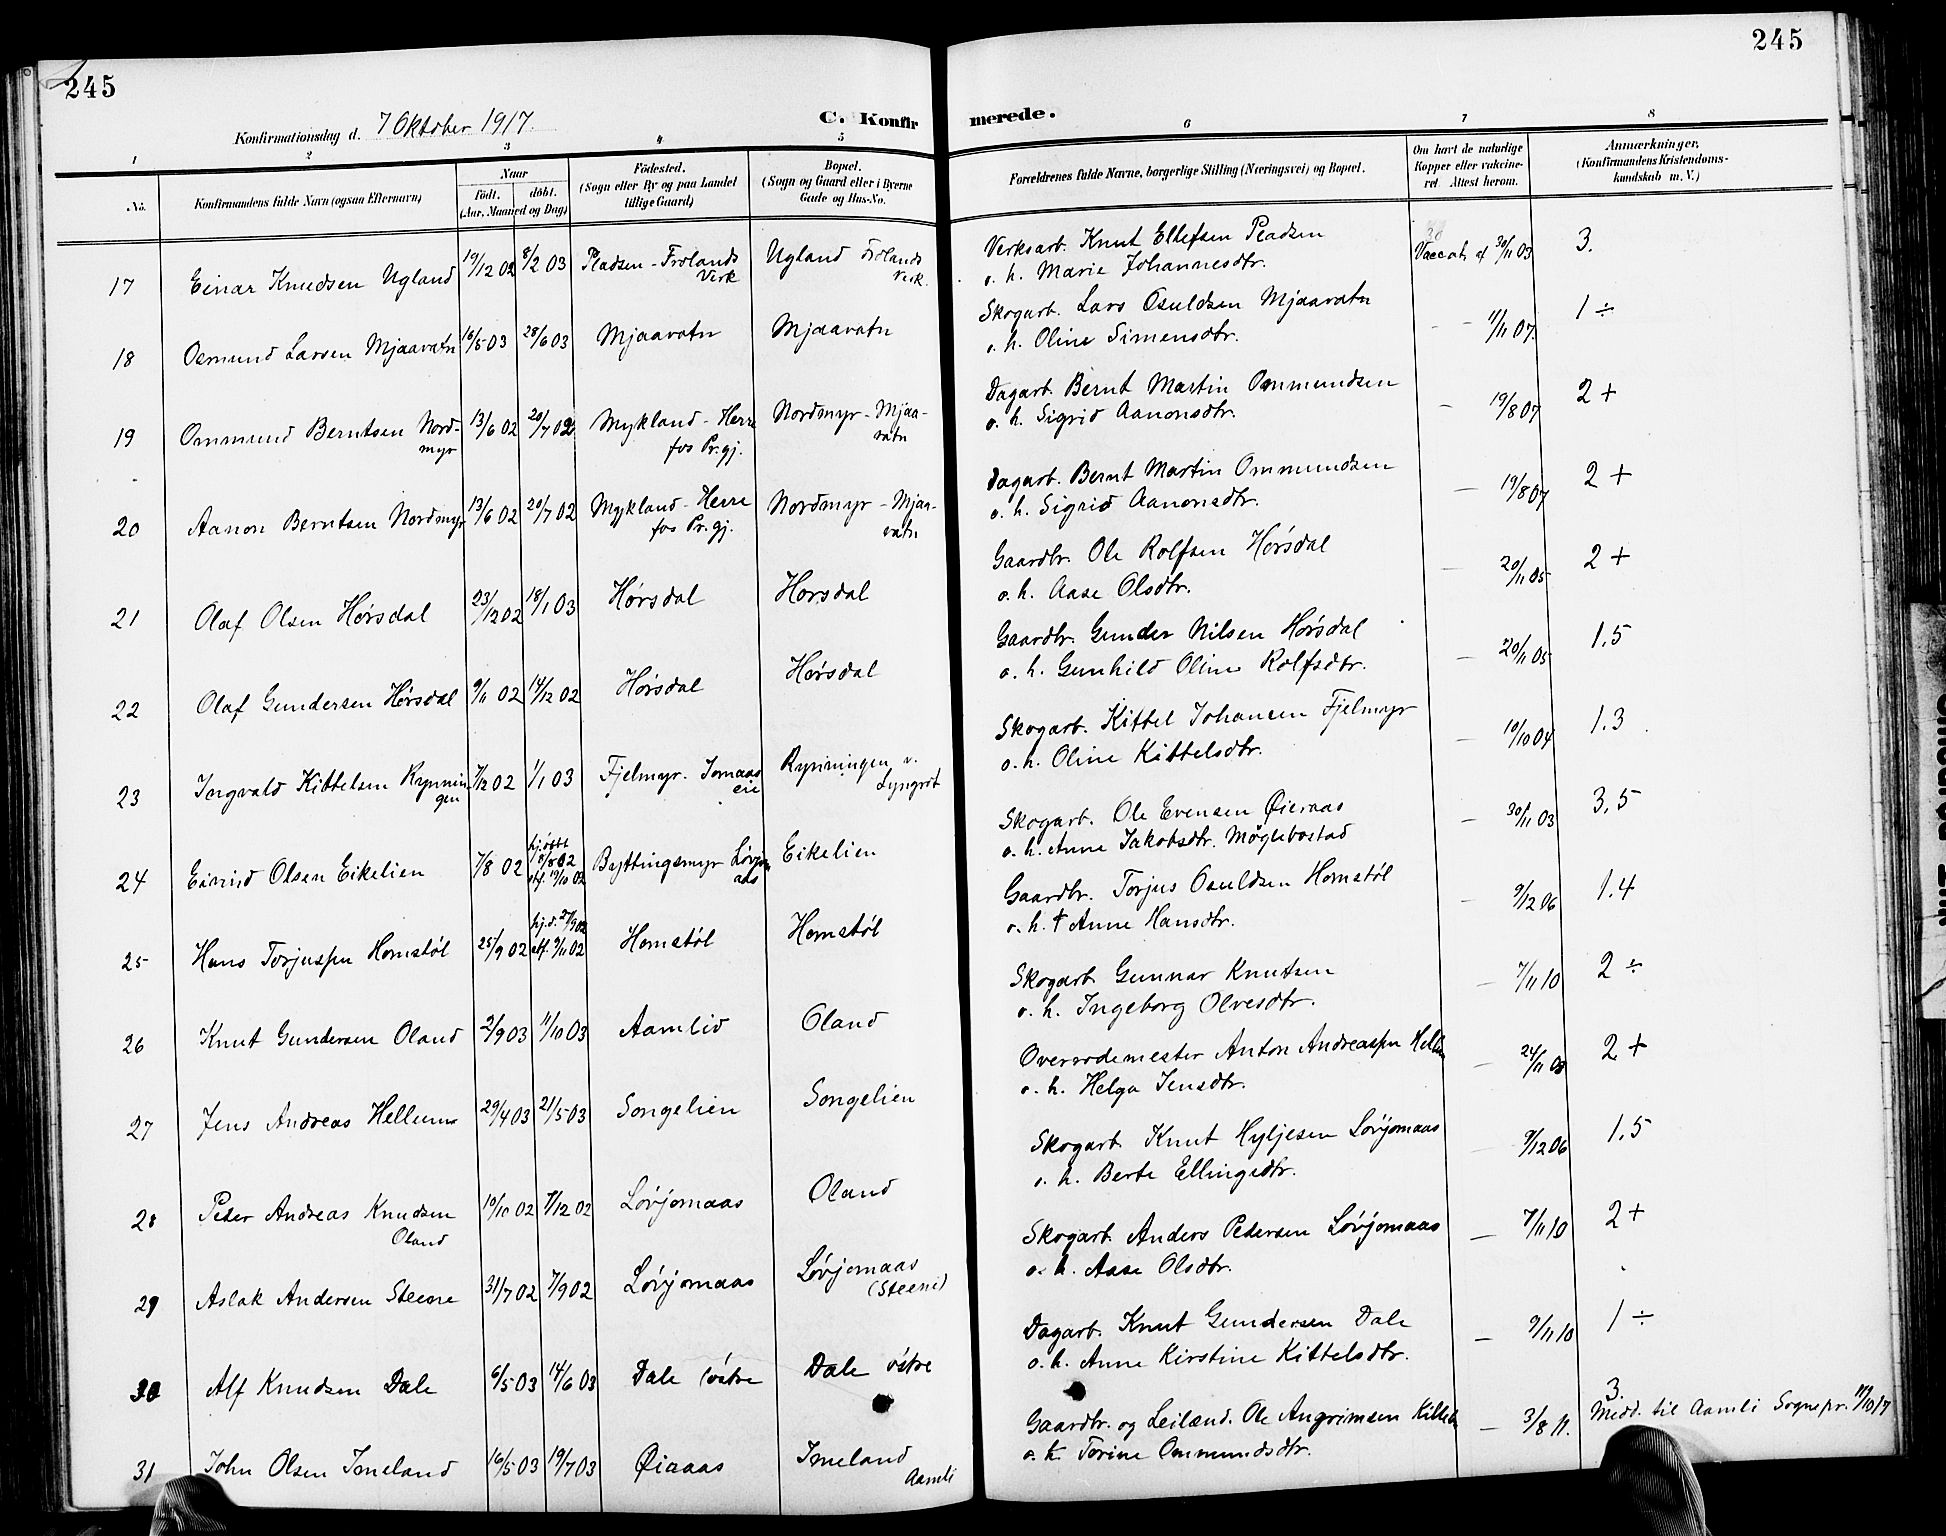 245
245
Konfirmationsdag d. 7 Oktober 1917.
C. Konfirmerede.
1 2 3 4 5 6 7 8
No.
Konfirmandens fulde Navn (ogsaa Efternavn)
Naar
Födt. döbt.
(Aar, Maaned og Dag)
Födested.
(Sogn eller By og paa Landet
tillige Gaard)
Bopæl.
(Sogn og Gaard eller i Byerne
Gade og Hus-No.
Forældrenes fulde Navne, borgerlige Stilling (Næringsvei) og Bopæl.
Om havt de naturlige
Kopper eller vakcine-
ret. Attest herom.
Anmærkninger,
(Konfirmandens Kristendoms-
kundskab m. V.)
17 Einar Knudsen Ugland 19/12 02 8/2 03 Pladsen - Frolands Verk Ugland Frolands Verk. Verksarb. Knut Ellefsen Pladsen
o. h. Marie Johannesdtr. Vaccat. af 30/11 03 3.
18 Osmund Larsen Mjaavatn 16/5 03 28/6 03 Mjaavatn Mjaavatn Skogarb. Lars Osuldsen Mjaavatn
o. h. Oline Simensdtr. - - 11/11 07. 1 ÷
19 Ommund Berntsen Nord-
myr 13/6 02 20/7 02 Mykland - Herre
fos Pr.gj. Nordmyr - Mjaa-
vatn Dagarb. Bernt Martin Ommundsen
o. h. Sigrid Aanonsdtr. - 19/8 07 2 +
20 Aanon Berntsen Nordmyr 13/6 02 20/7 02 Mykland - Herre
fos Pr.gj. Nordmyr - Mjaa-
vatn Dagarb. Bernt Martin Ommundsen
o. h. Sigrid Aanonsdtr. - 19/8 07 2 +
21 Olaf Olsen Hørsdal 23/12 02 18/1 03 Hørsdal Horsdal Gaardbr. Ole Rolfsen Hørsdal
o. h. Aase Olsdtr. - 20/11 05 2 +
22 Olaf Gundersen Hørsdal 9/11 02 14/12 02 Hørsdal Hørsdal Gaardbr. Gunder Nilsen Hørsdal
o. h. Gunhild Oline Rolfsdtr. - 20/11 05 1.5
23 Ingvald Kittelsen Rynnin-
gen 7/12 02 1/1 03 Fjelmyr. Jomaas
eie Rynningen v.
Lyngrot Skogarb. Kittel Johansen Fjelmyr
o. h. Oline Kittelsdtr. - 10/10 04 1.3
24 Eivind Olsen Eikelien 7/8 02 hj. døbt
18/8 02
stf. 19/10 02 Byttingsmyr Løvjom
aas Eikelien Skogarb. Ole Evensen Øieraas
o. h. Anne Jakobsdtr. Møglebostad - 30/11 03 3,5
25 Hans Torjuspn Homstøl 25/9 02 hj. d. 27/9 02
stf. 9/11 02 Homstøl Homstøl Gaardbr. Torjus Osuldsen Homstøl
o. h. † Anne Hansdtr. - 9/12 06 1.4
26 Knut Gundersen Oland 2/9 03 11/10 03 Aamlid Oland Skogarb. Gunnar Knutsen
o. h. Ingeborg Olvesdtr. - 7/11 10 2 ÷
27 Jens Andreas Hellum 29/4 03 21/5 03 Songelien Songelien Overrodemester Anton Andreaspn Hellum
o. h. Helga Jensdtr. - 24/11 08 2 +
28 Peder Andreas Knudsen
Oland 10/10 02 7/12 02 Løvjomaas Oland Skogarb. Knut Hyljesen Løvjomaas
o. h. Berte Ellingsdtr. - 9/12 06 1.5
29 Aslak Andersen Steene 31/7 02 7/9 02 Løvjomaas Løvjomaas
(Steene) Skogarb. Anders Pedersen Løvjomaas
o. h. Aase Olsdtr. - 7/11 10 2 +
30 Alf Knudsen Dale 6/5 03 14/6 03 Dale østre Dale østre Dagarb. Knut Gundersen Dale
o. h. Anne Kirstine Kittelsdtr. - 9/11 10 1 ÷
31 John Olsen Imeland 16/5 03 19/7 03 Øiaaas Imeland
Aamli Gaardbr. og Leilænd. Ole Angrimsen
o. h. Torine Ommundsdtr. - 3/8 11. 3.
Medd. til Aamli Sognepr. 10/17